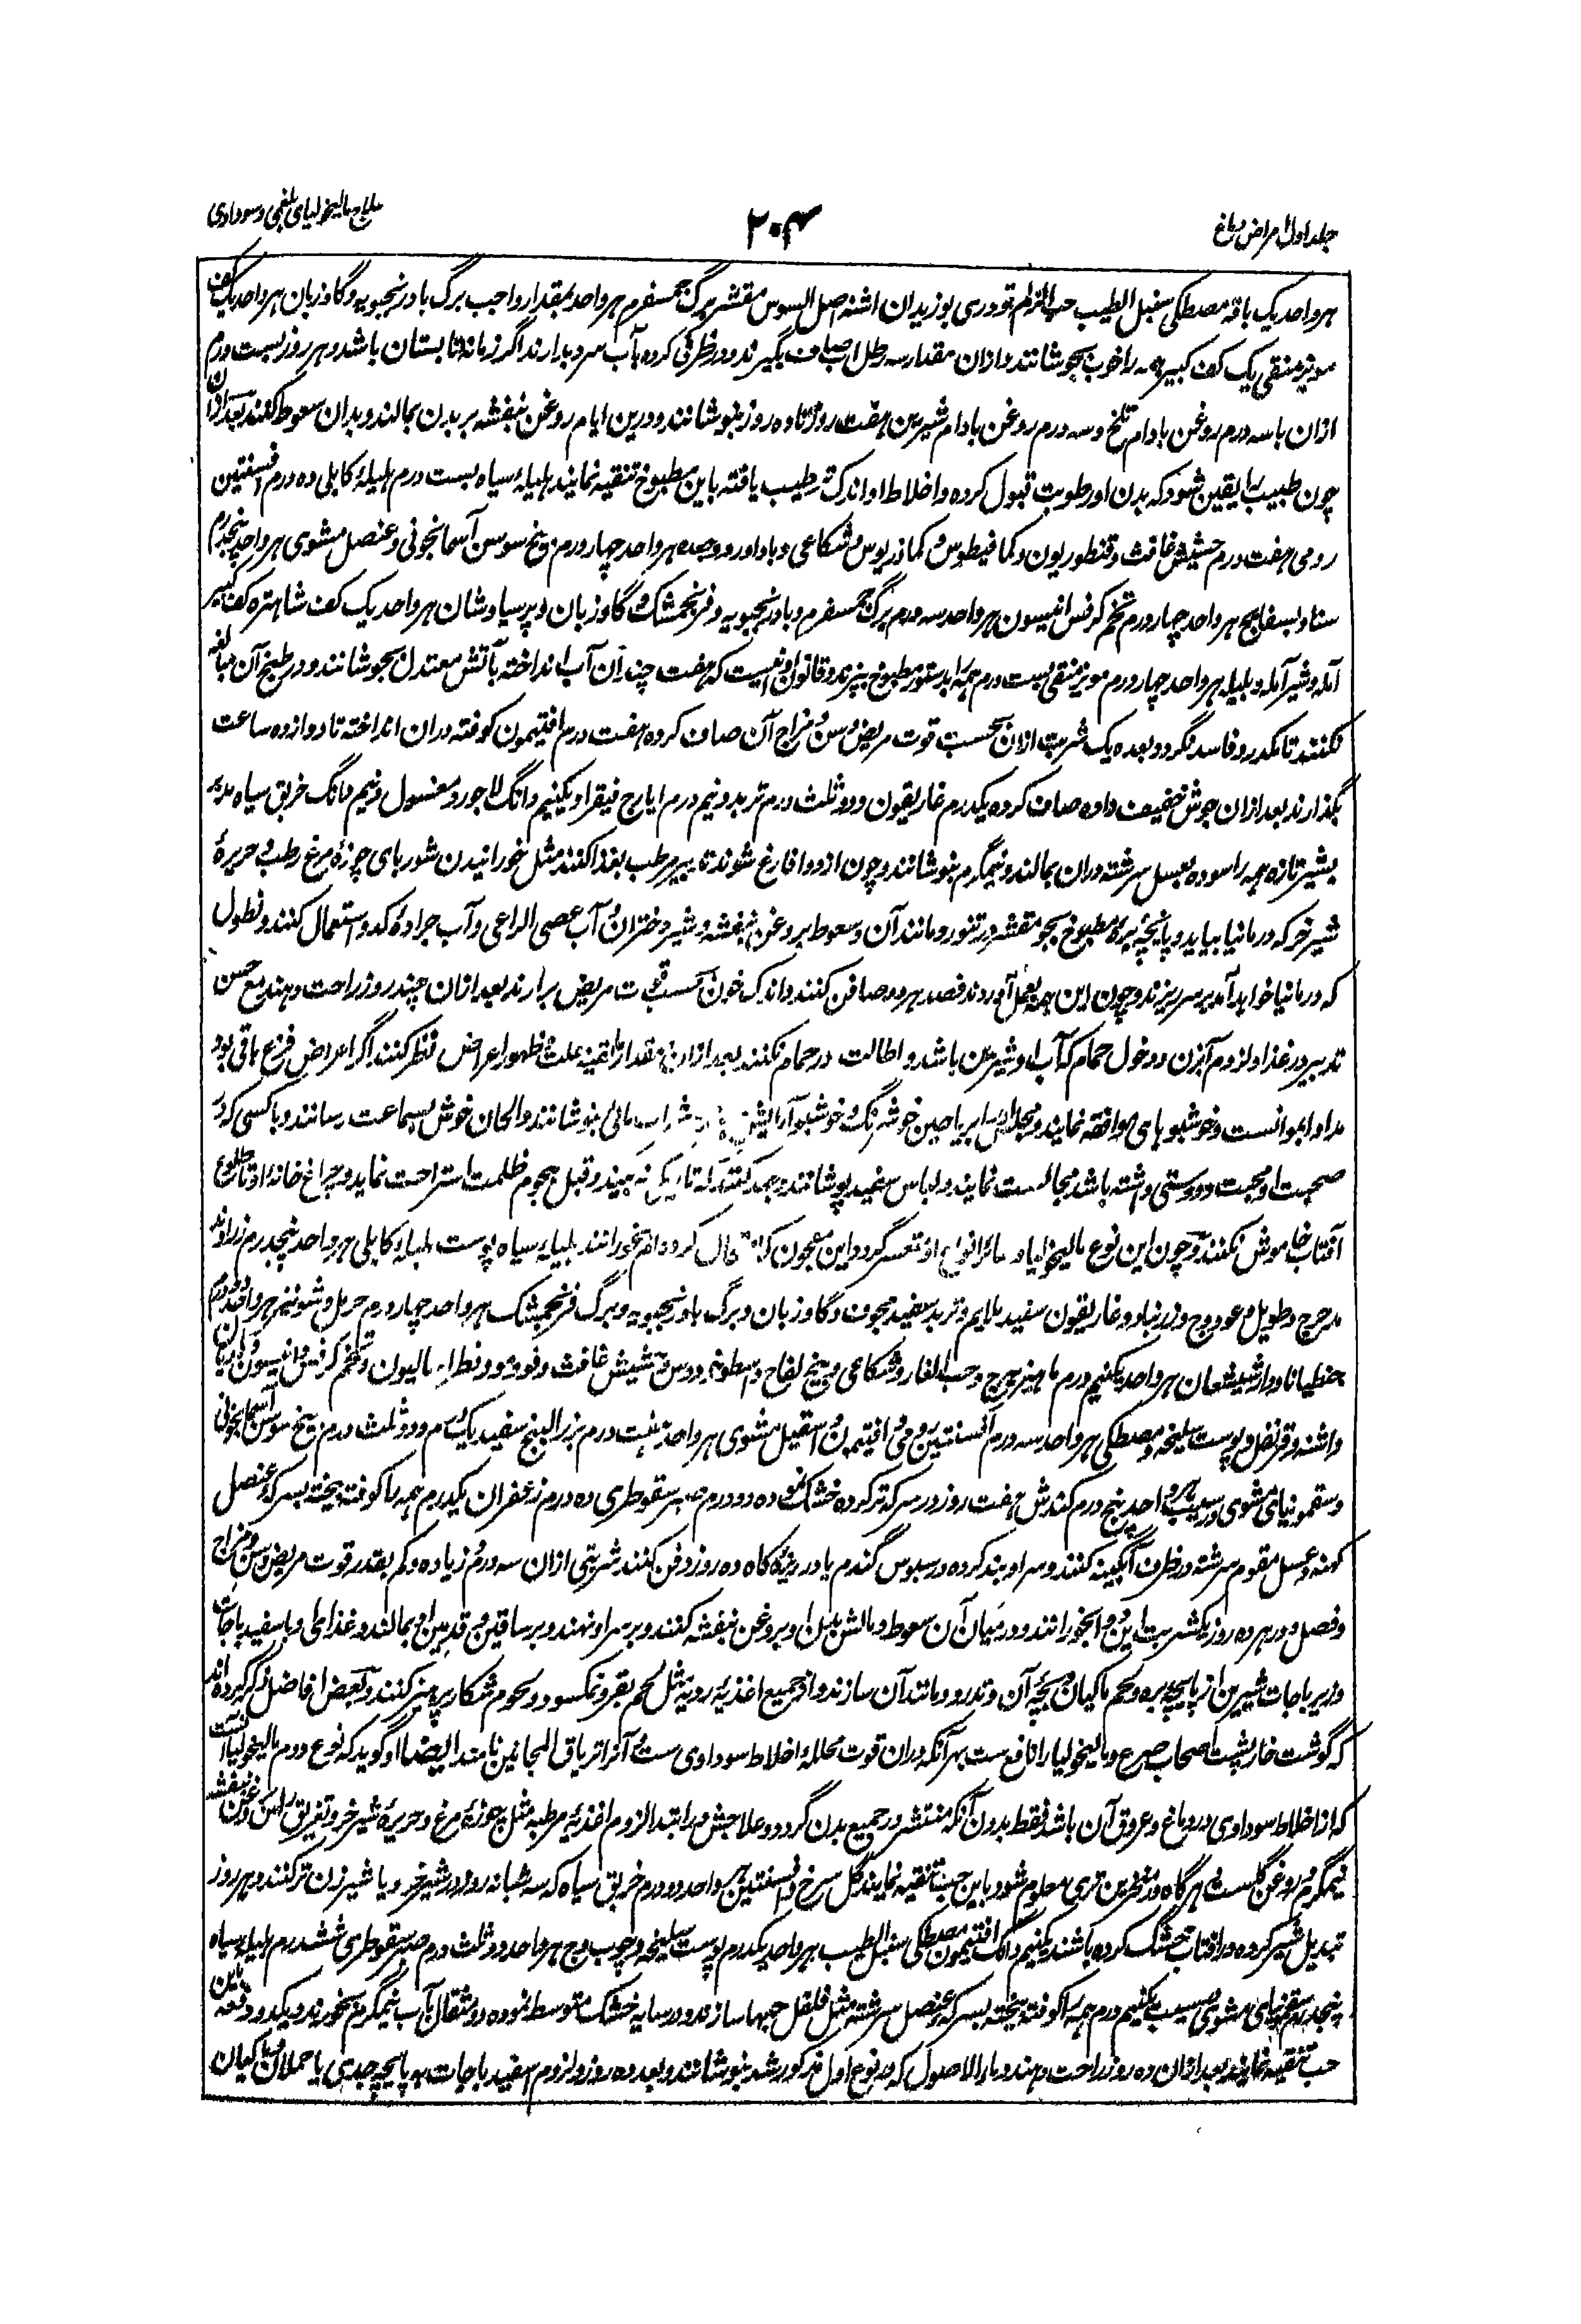 جلد اول امراض دماغ
۲۰۴
علاج مالیخولیای بلغمی و سوداوی
هر واحد یک باقه مصطکی سنبل الطیب حب الزلم تودری بوزیدان اشنه اصل السوس مقشر برگ جمسفرم هر واحد بمقدار واجب برگ بادرنجبویه و گاوزبان هر واحد یک کف
مویز منقی یک کف کبیر همه را خوب بجوشانند و ازان مقدار سه رطل آب صاف بگیرند و در ظرفی کرده بآب سرد بدارند اگر زمانه تابستان باشد و هر روز بست درم
ازان با سه درم روغن بادام تلخ و سه درم روغن بادام شیرین هفت روز تا ده روز بنوشانند و درین ایام روغن بنفشه بر بدن بمالند و بدان سعوط کنند بعد ازان
چون طبیب را یقین شود که بدن او رطوبت قبول کرده و اخلاط او اندک ترطیب یافته باین مطبوخ تنقیه نمایند هلیله سیاه بست درم هلیلهٔ کابلی ده درم افسنتین
رومی هفت درم حشیش غافث و قنطوریون و کمافیطوس و کمادریوس و شکاعی و بادآورد و جعده هر واحد چهار درم و بیخ سوسن آسمانجونی و عنصل مشوی هر واحد پنجدرم
سنا و بسفایج هر واحد چهار درم تخم کرفس انیسون هر واحد سه درم برگ جمسفرم و بادرنجبویه و فرنجمشک و گاوزبان و پرسیاوشان هر واحد یک کف شاهتره کف کبیر
آمله و شیرآمله و بلیله هر واحد چهار درم مویز منقی بست درم همه را بدستور مطبوخ بپزند و قانون او اینست که هفت چندان آب انداخته بآتش معتدل بجوشانند و در طبخ آن مبالغه
نکنند تا مکدر و فاسد نگردد و بعده یک شربت ازان بحسب قوت مریض و سن و مزاج آن صاف کرده هفت درم افتیمون کوفته دران انداخته تا دوازده ساعت
بگذارند بعد ازان جوش خفیف داده صاف کرده یکدرم غاریقون و دو ثلث درم تربد و نیم درم ایارج فیقرا و یکنیم دانگ لاجورد مغسول و نیم دانگ خربق سیاه مدبر
بشیر تازه همه را سوده بعسل سرشته دران بمالند و نیمگرم بنوشانند و چون از دوا فارغ شوند تدبیر مرطب بغذا کنند مثل خورانیدن شوربای چوزهٔ مرغ رطب و حریرهٔ
شیر خر که در مانیا بیاید و پایچهٔ بره مطبوخ بجو مقشر در تنور و مانند آن و سعوط بروغن بنفشه و شیر دختران و آب عصی الراعی و آب جرادهٔ کدو استعمال کنند و نطول
که در مانیا خواهد آمد بر سر ریزند و چون این همه بعمل آورند فصد هر دو صافن کنند و اندک خون بحسب قوت مریض برآرند بعد ازان چند روز راحت دهند مع حسن
تدبیر در غذا و لزوم آبزن و دخول حمام که آب او شیرین باشد و اطالت در حمام نکنند بعد ازان بمقدار تنقیه علت و ظهور اعراض نظر کنند اگر اعراض فزع باقی بود
مداوا بموانست و خوشبوهای موافقه نمایند و مجلس را بریاحین خوش رنگ و خوشبو آرایش بنوشانند و الحان خوش بسماعت رسانند و با کسی که در
صحبت او محبت و دوستی داشته باشد مجالست نمایند و لباس سفید پوشانند و جهد کنند که تاریکی نه بیند و قبل هجوم ظلمت استراحت نماید و چراغ خانه او تا طلوع
آفتاب خاموش نکنند و چون این نوع مالیخولیا از سائر انواع او متعسر گردد این معجون بخورانند هلیله سیاه پوست هلیلهٔ کابلی هر واحد پنجدرم زراوند
مدحرج و طویل و عود وج و زرنباد و غاریقون سفید ملایم و تربد سفید مجوف و گاوزبان و برگ بادرنجبویه و برگ فرنجمشک هر واحد چهار درم حرمل و شونیز هر واحد دو درم
جنطیانا و دارشیشعان هر واحد یکنیم درم و حب الغار و شکاعی و بیخ لفاح و اسطوخودوس و حشیش غافث و فوه و تخم کرفس و انیسون
و اشنه و قرنفل و پوست سلیخه و مصطکی هر واحد سه درم افسنتین رومی و افتیمون و اسقیل مشوی هر واحد هفت درم بزرالبنج سفید یک درم و دو ثلث درم بیخ سوسن آسمانجونی
و سقمونیای مشوی در سیب هر واحد پنج درم کندش هفت روز در سرکه تر کرده خشک نموده دو درم صبر سقوطری ده درم زعفران یکدرم همه را کوفته بیخته بسرکه عنصل
کهنه و عسل مقوم سرشته در ظرف آبگینه کنند و سر او بند کرده در سبوس گندم یا در ریزهٔ کاه ده روز دفن کنند شربتی ازان سه درم و زیاده و کم بقدر قوت مریض و سن و مزاج
و فصل و در هر ده روز یک شربت ازین دوا بخورانند و در میان آن سعوط و مالش بدن او بروغن بنفشه کنند و بر سر او نهند و بر ساقین و قدمین او بمالند و غذا طی و با سفیدباجات
و زیرباجات شیرین از پایچه بره و لحم ماکیان و بچهٔ آن و تدرو و مانند آن سازند و از جمیع اغذیه ردیه مثل لحم بقر و نمکسود و لحوم شکار پرهیز کنند و بعض افاضل ذکر کرده اند
که گوشت خارپشت اصحاب صرع و مالیخولیا را نافع ست بهر آنکه دران قوت محلله اخلاط سوداوی ست و آنرا تریاق المجانین نامند ایضا او گوید که نوع دوم مالیخولیا آنست
که از اخلاط سوداوی در دماغ و عروق آن باشد فقط بدون آنکه منتشر در جمیع بدن گردد و علاجش در ابتدا لزوم اغذیهٔ مرطبه مثل چوزهٔ مرغ و حریرهٔ شیر خر و تغریق راس بروغن بنفشه
نیمگرم و روغن گلست و هرگاه در منخرین تری معلوم شود باین حب تنقیه نمایند گل سرخ و افسنتین هر واحد دو درم خربق سیاه که سه شبانه روز در شیر خر و یا شیر زن تر کنند و هر روز
تبدیل شیر کرده در آفتاب خشک کرده باشند یکنیم دانگ افتیمون مصطکی سنبل الطیب هر واحد یکدرم پوست سلیخه و چوب وج هر واحد دو ثلث درم صبر سقوطری ششدرم هلیله سیاه
پنجدرم سقمونیای مشوی بسیب یکنیم درم همه را کوفته بیخته بسرکهٔ عنصل سرشته مثل فلفل حبها سازند و در سایه خشک متوسط نموده دو مثقال بآب نیمگرم بخورند و یکدو دفعه باین
حب تنقیه نمایند و بعد ازان ده روز راحت دهند و ماء الاصول که در نوع اول مذکور شد بنوشانند و بعد ده روز و لزوم سفیدباجات به پایچه جدی یا حملان و ماکیان